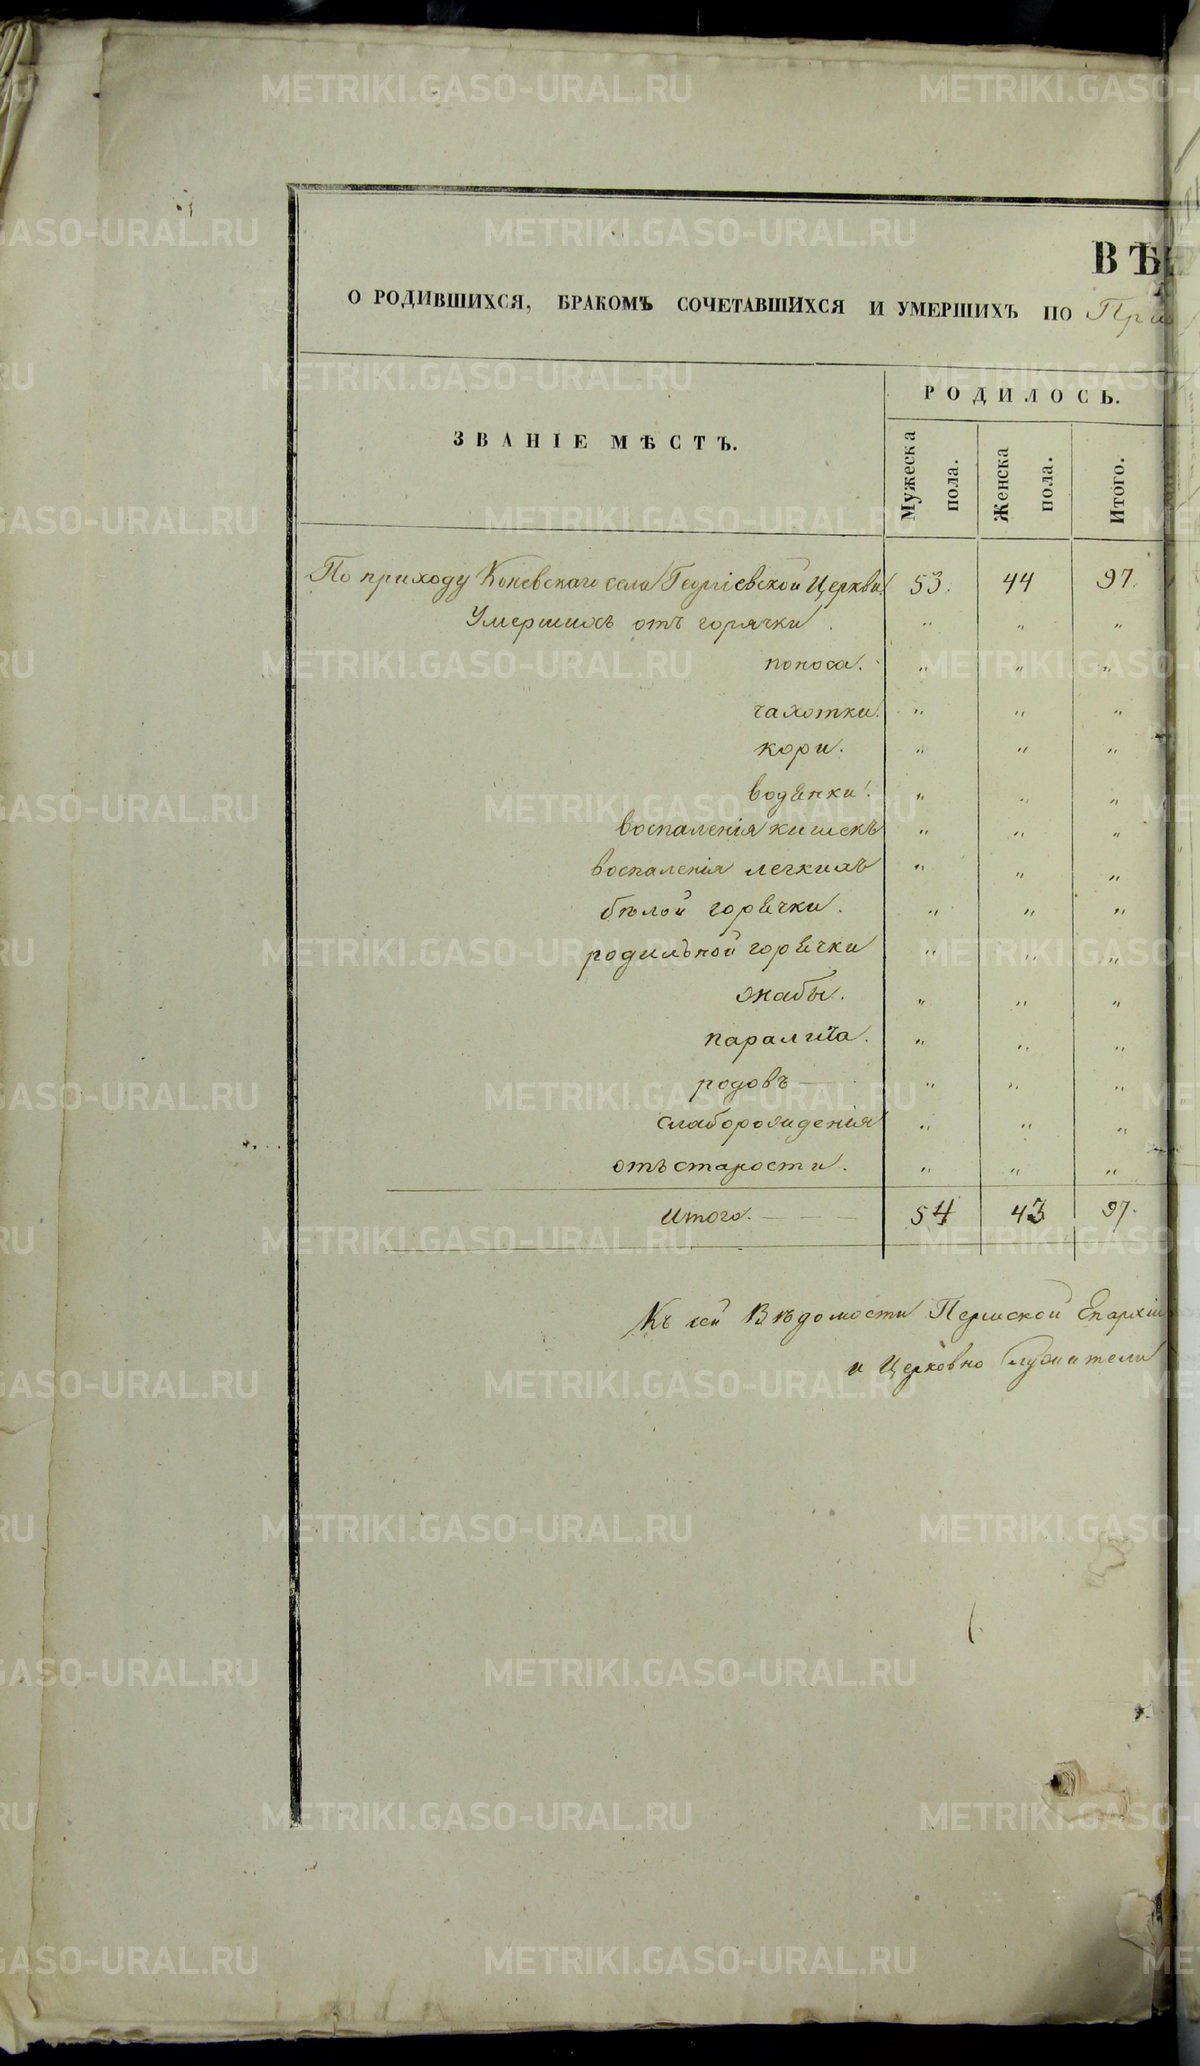 ВѢ
О РОДИВШИХСЯ, БРАКОМЪ СОЧЕТАВШИХСЯ И УМЕРШИХЪ ПО При
ЗВАНІЕ МѢСТЪ.
РОДИЛОСЬ.
Мужеска пола.
Женска пола.
Итого.
По приходу Коневскаго села Георгіевской Церкви 53. 44 97.
Умершихъ отъ горячки . " " "
поноса. " " "
чахотки. " " "
кори. " " "
водянки. " " "
воспаленія кишекъ " " "
воспаленія легкихъ " " "
бѣлой горячки. " " "
родильной горячки " " "
жабы. " " "
паралича. " " "
родовъ — " " "
слаборожденія " " "
отъ старости. " " "
Итого. — — — 54 43 97.
Къ сей Вѣдомости Пермской Епархіи
и Церковно служители
METRIKI.GASO-URAL.RU